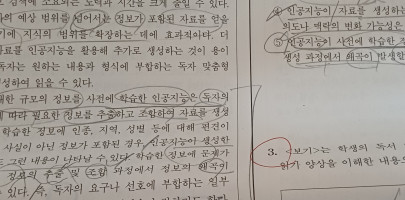 검색에 소요되는 노력과 시간을 크게 줄일 수 있다.
의 예상 범위를 넘어서는 정보가 포함된 자료를 얻을
에 지식의 범위를 확장하는 데에 효과적이다. 더
자료를 인공지능을 활용해 추가로 생성하는 것이 용이
독자는 원하는 내용과 형식에 부합하는 독자 맞춤형
생성하여 읽을 수 있다.
대한 규모의 정보를 사전에 학습한 인공지능은 독자의
에 따라 필요한 정보를 추출하고 조합하여 자료를 생성
학습한 정보에 인종, 지역, 성별 등에 대해 편견이
사실이 아닌 정보가 포함된 경우, 인공지능이 생성한
도 그런 내용이 나타날 수 있다. 학습한 정보에 문제가
정보의 추출 및 조합 과정에서 정보의 왜곡이
있다. 즉, 독자의 요구나 선호에 부합하는 일부
④ 인공지능이 자료를 생성
의도나 맥락의 변화 가능성은
⑤ 인공지능이 사전에 학습한 정
생성 과정에서 왜곡이 발생할
3. <보기>는 학생의 독서
읽기 양상을 이해한 내용으